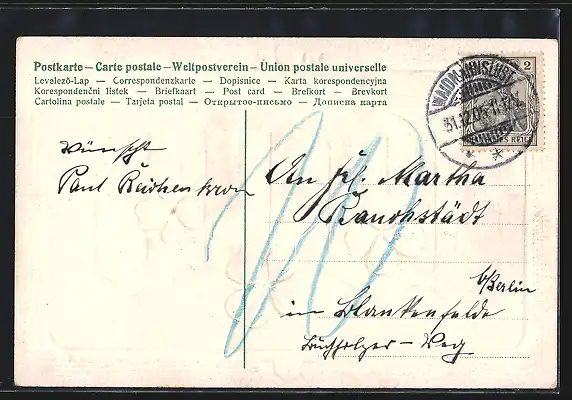 Postkarte — Carte postale — Weltpostverein — Union postale universelle
Levelező-Lap — Correspondenzkarte — Dopisnice — Karta korespondencyjna
Korespondenční lístek — Briefkaart — Post card — Brefkort — Brevkort
Cartolina postale — Tarjeta postal — Открытое-письмо — Дописна карта
2
31.12.05.11-12V.
REICH
wünscht
Paul
An Frl. Martha
b/Berlin
in Blankenfelde
Buchholzer-Weg